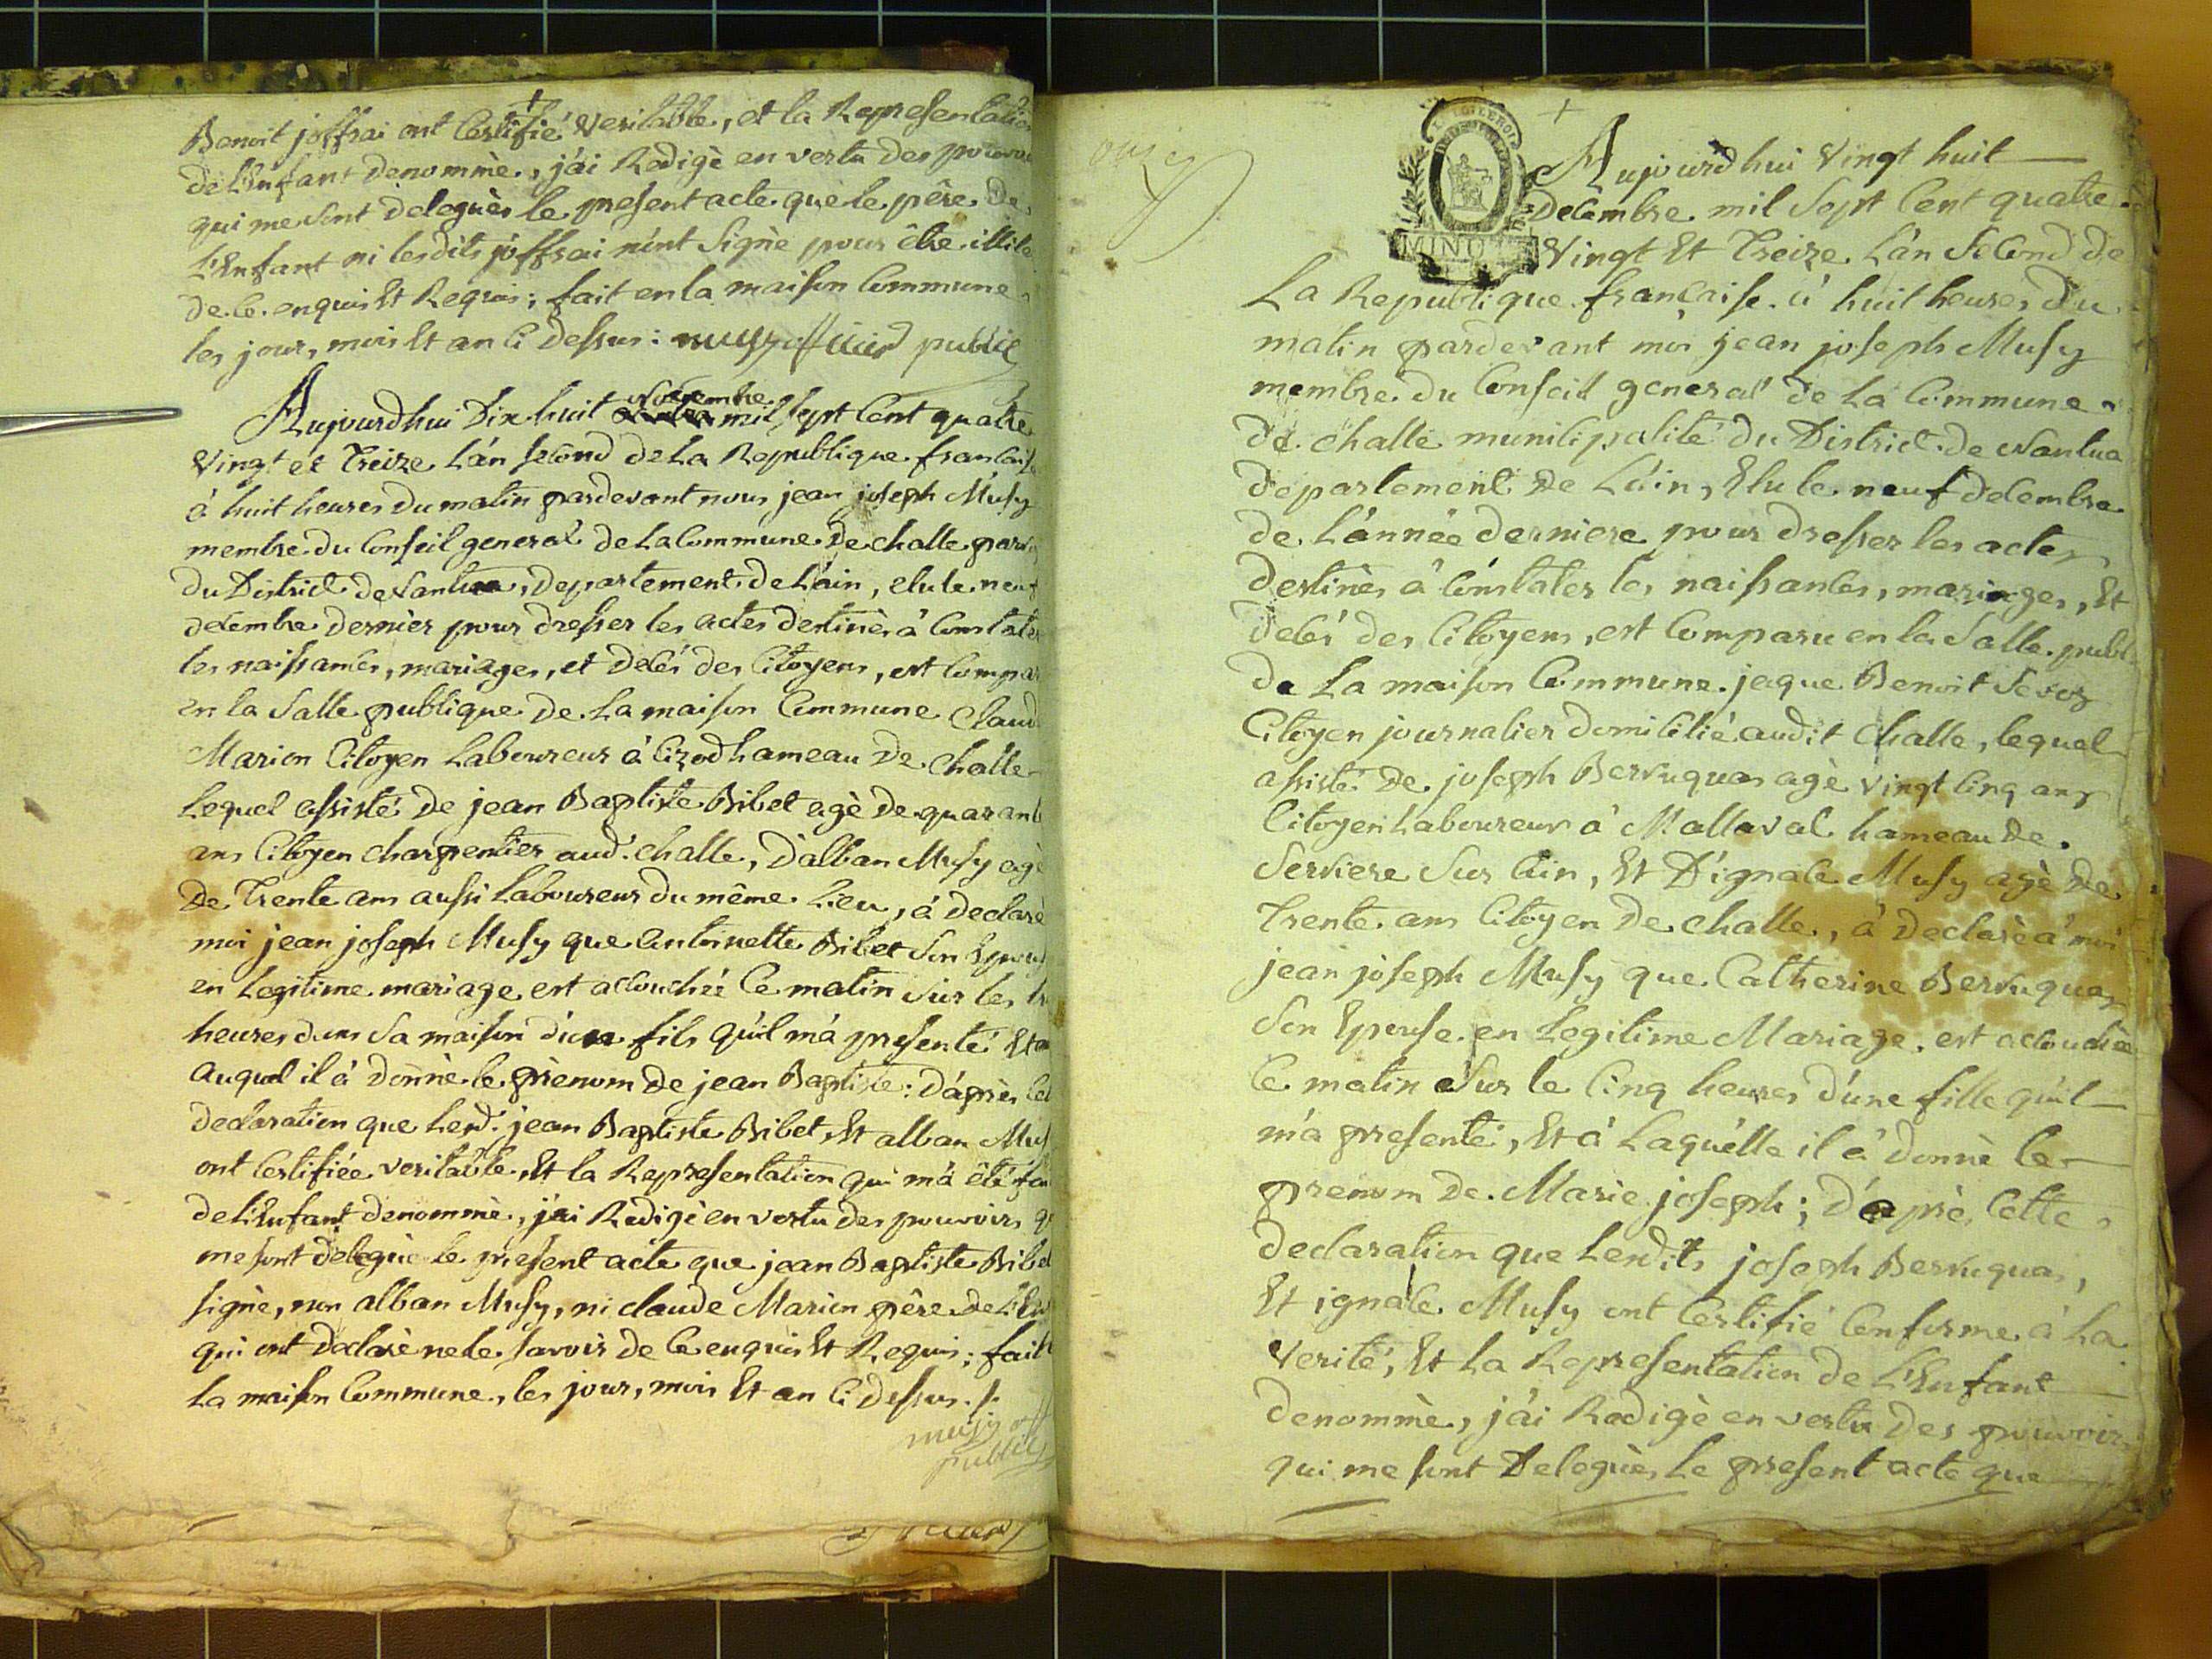 Benoit joffrai ont Certifié Veritable, et la Representation
de L'Enfant denommè, j'ai Redigè en vertu des pouvoi
qui me sont deleguès le present acte que le père de
L'Enfant ni lesdits joffrai n'ont Signè pour être illite
de ce enquis Et Requis; fait en la maison Commune
les jour, mois Et an Ci dessus: musy officier public
Aujourdhui Dix huit novembre mil sept Cent quatre
Vingt et Treize L'an second de La Republique francais
à huit heures du matin pardevant nous jean joseph Musy
membre du Conseil general de La Commune De challe
du District de Nantua, Departement de L'ain, elu le neuf
decembre dernièr pour dresser les actes destinès à Constater
les naissances, mariages, et decés des Citoyens, est Compar
en la Salle publique de La maison Commune Claud
Marion Citoyen Laboureur à Cizod hameau de challe
Lequel assisté de jean Baptiste Bibet agè de quarant
ans Citoyen charpentier aud. challe, d'alban Musy agè
de Trente ans aussi Laboureur du même Lieu, à declarè
moi jean joseph Musy que antoinette Bibet Son Epous
en Legitime mariage est accouchée Ce matin Sur les
heures dans Sa maison d'un fils qu'il m'a presenté Et
auquel il à donnè le prènom de jean Baptiste: d'après Cet
declaration que Lesd. jean Baptiste Bibet, Et alban Mus
ont Certifiée veritable, Et la Representation qui m'à été
de L'Enfant denommè, j'ai Redigè en vertu des pouvoirs q
me sont deleguè le present acte que jean Baptiste Bibet
signè, non alban Musy, ni claude Marion père de L'En
qui ont declarè ne le savoir de Ce enquis Et Requis; fait
La maison Commune, les jour, mois Et an Ci dessus ./.
musy off
public
onze
MINUTE
Aujourdhui Vingt huit
Decembre mil Sept Cent quatre
Vingt Et Treize L'an Second de
La Republique française à huit heures du
matin pardevant moi jean joseph Musy
membre du Conseil general de La Commune
de challe municipalité du District de Nantua
departement de L'ain, Elu le neuf decembre
de L'année derniere pour dresser les actes
destinès à Constater les naissances, mariages, Et
decés des Citoyens, est Comparu en la Salle publi
de La maison Commune jaque Benoit Sevoz
Citoyen journalier domicilié audit challe, lequel
assisté de joseph Berruquas agè vingt Cinq ans
Citoyen Laboureur à Mallaval hameau de
Serviere Sur Ain, Et d'ignace Musy agè de
Trente ans Citoyen de challe, à declarè à moi
jean joseph Musy que Catherine Berruquas
Son Epouse en Legitime Mariage, est accouchée
Ce matin Sur le Cinq heures d'une fille qu'il
m'a presenté, Et à Laquélle il à donnè le
prenom de Marie joseph; d'après Cette
declaration que Lesdits joseph Berruquas,
Et ignace Musy ont Certifié Conforme à La
Verité, Et La Representation de L'Enfant
denommè, j'ai Redigè en vertu des pouvoirs
qui me sont Deleguès Le present acte que